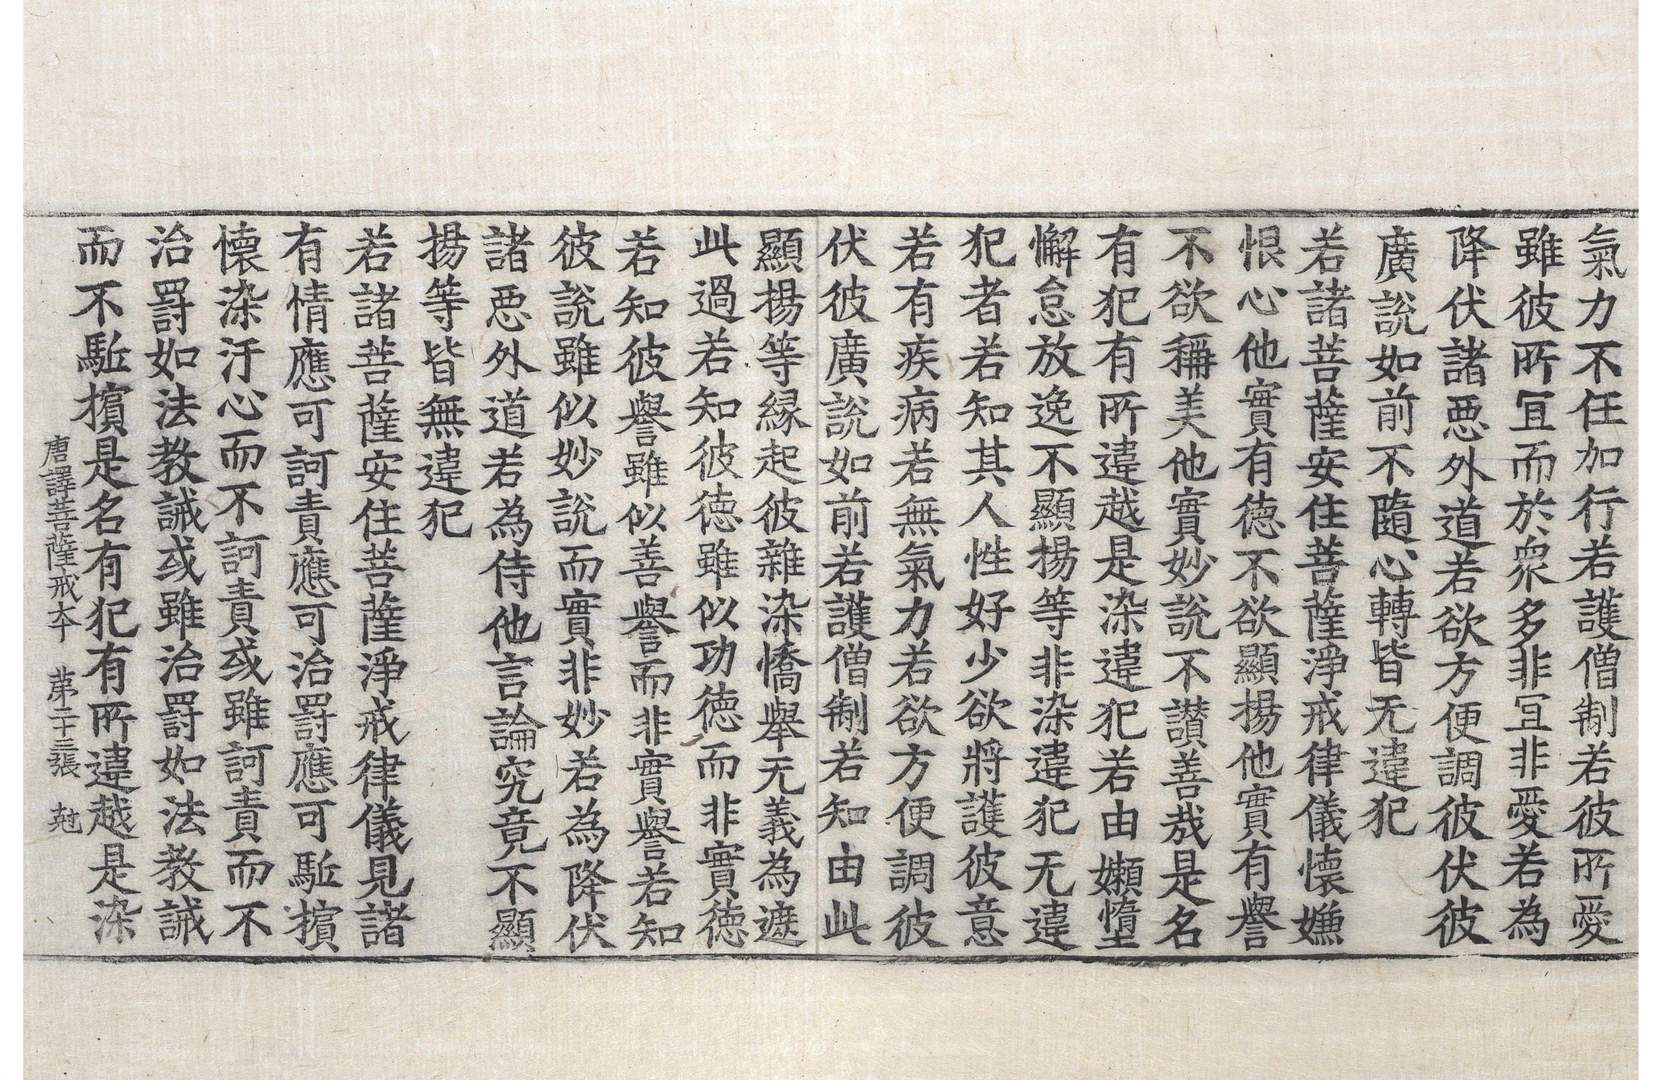 氣力不任加行若護僧制若彼所愛
雖彼所冝而於衆多非冝非愛若為
降伏諸惡外道若欲方便調彼伏彼
廣說如前不隨心轉皆无違犯
若諸菩薩安住菩薩淨戒律儀懷嫌
恨心他實有德不欲顯揚他實有譽
不欲稱美他實妙說不讃善哉是名
有犯有所違越是染違犯若由嬾墮
懈怠放逸不顯揚等非染違犯无違
犯者若知其人性好少欲將護彼意
若有疾病若無氣力若欲方便調彼
伏彼廣說如前若護僧制若知由此
顯揚等縁起彼雜染憍舉无義為遮
此過若知彼徳雖似功徳而非實徳
若知彼譽雖似善譽而非實譽若知
彼說雖似妙說而實非妙若為降伏
諸惡外道若為侍他言論究竟不顯
揚等皆無違犯
若諸菩薩安住菩薩淨戒律儀見諸
有情應可訶責應可治罸應可駈擯
懷染汙心而不訶責或雖訶責而不
治罸如法教誡或雖治罸如法教誡
而不駈擯是名有犯有所違越是染
唐譯菩薩戒夲　苐二十三張　尅